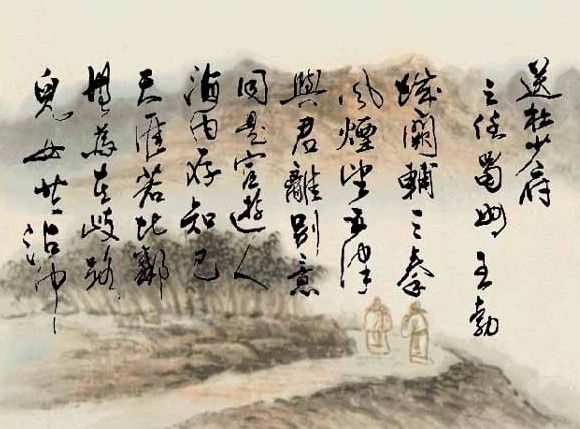 送杜少府
之任蜀州 王勃
城闕輔三秦
風煙望五津
與君離別意
同是宦遊人
海内存知己
天涯若比鄰
無為在歧路
兒女共沾巾